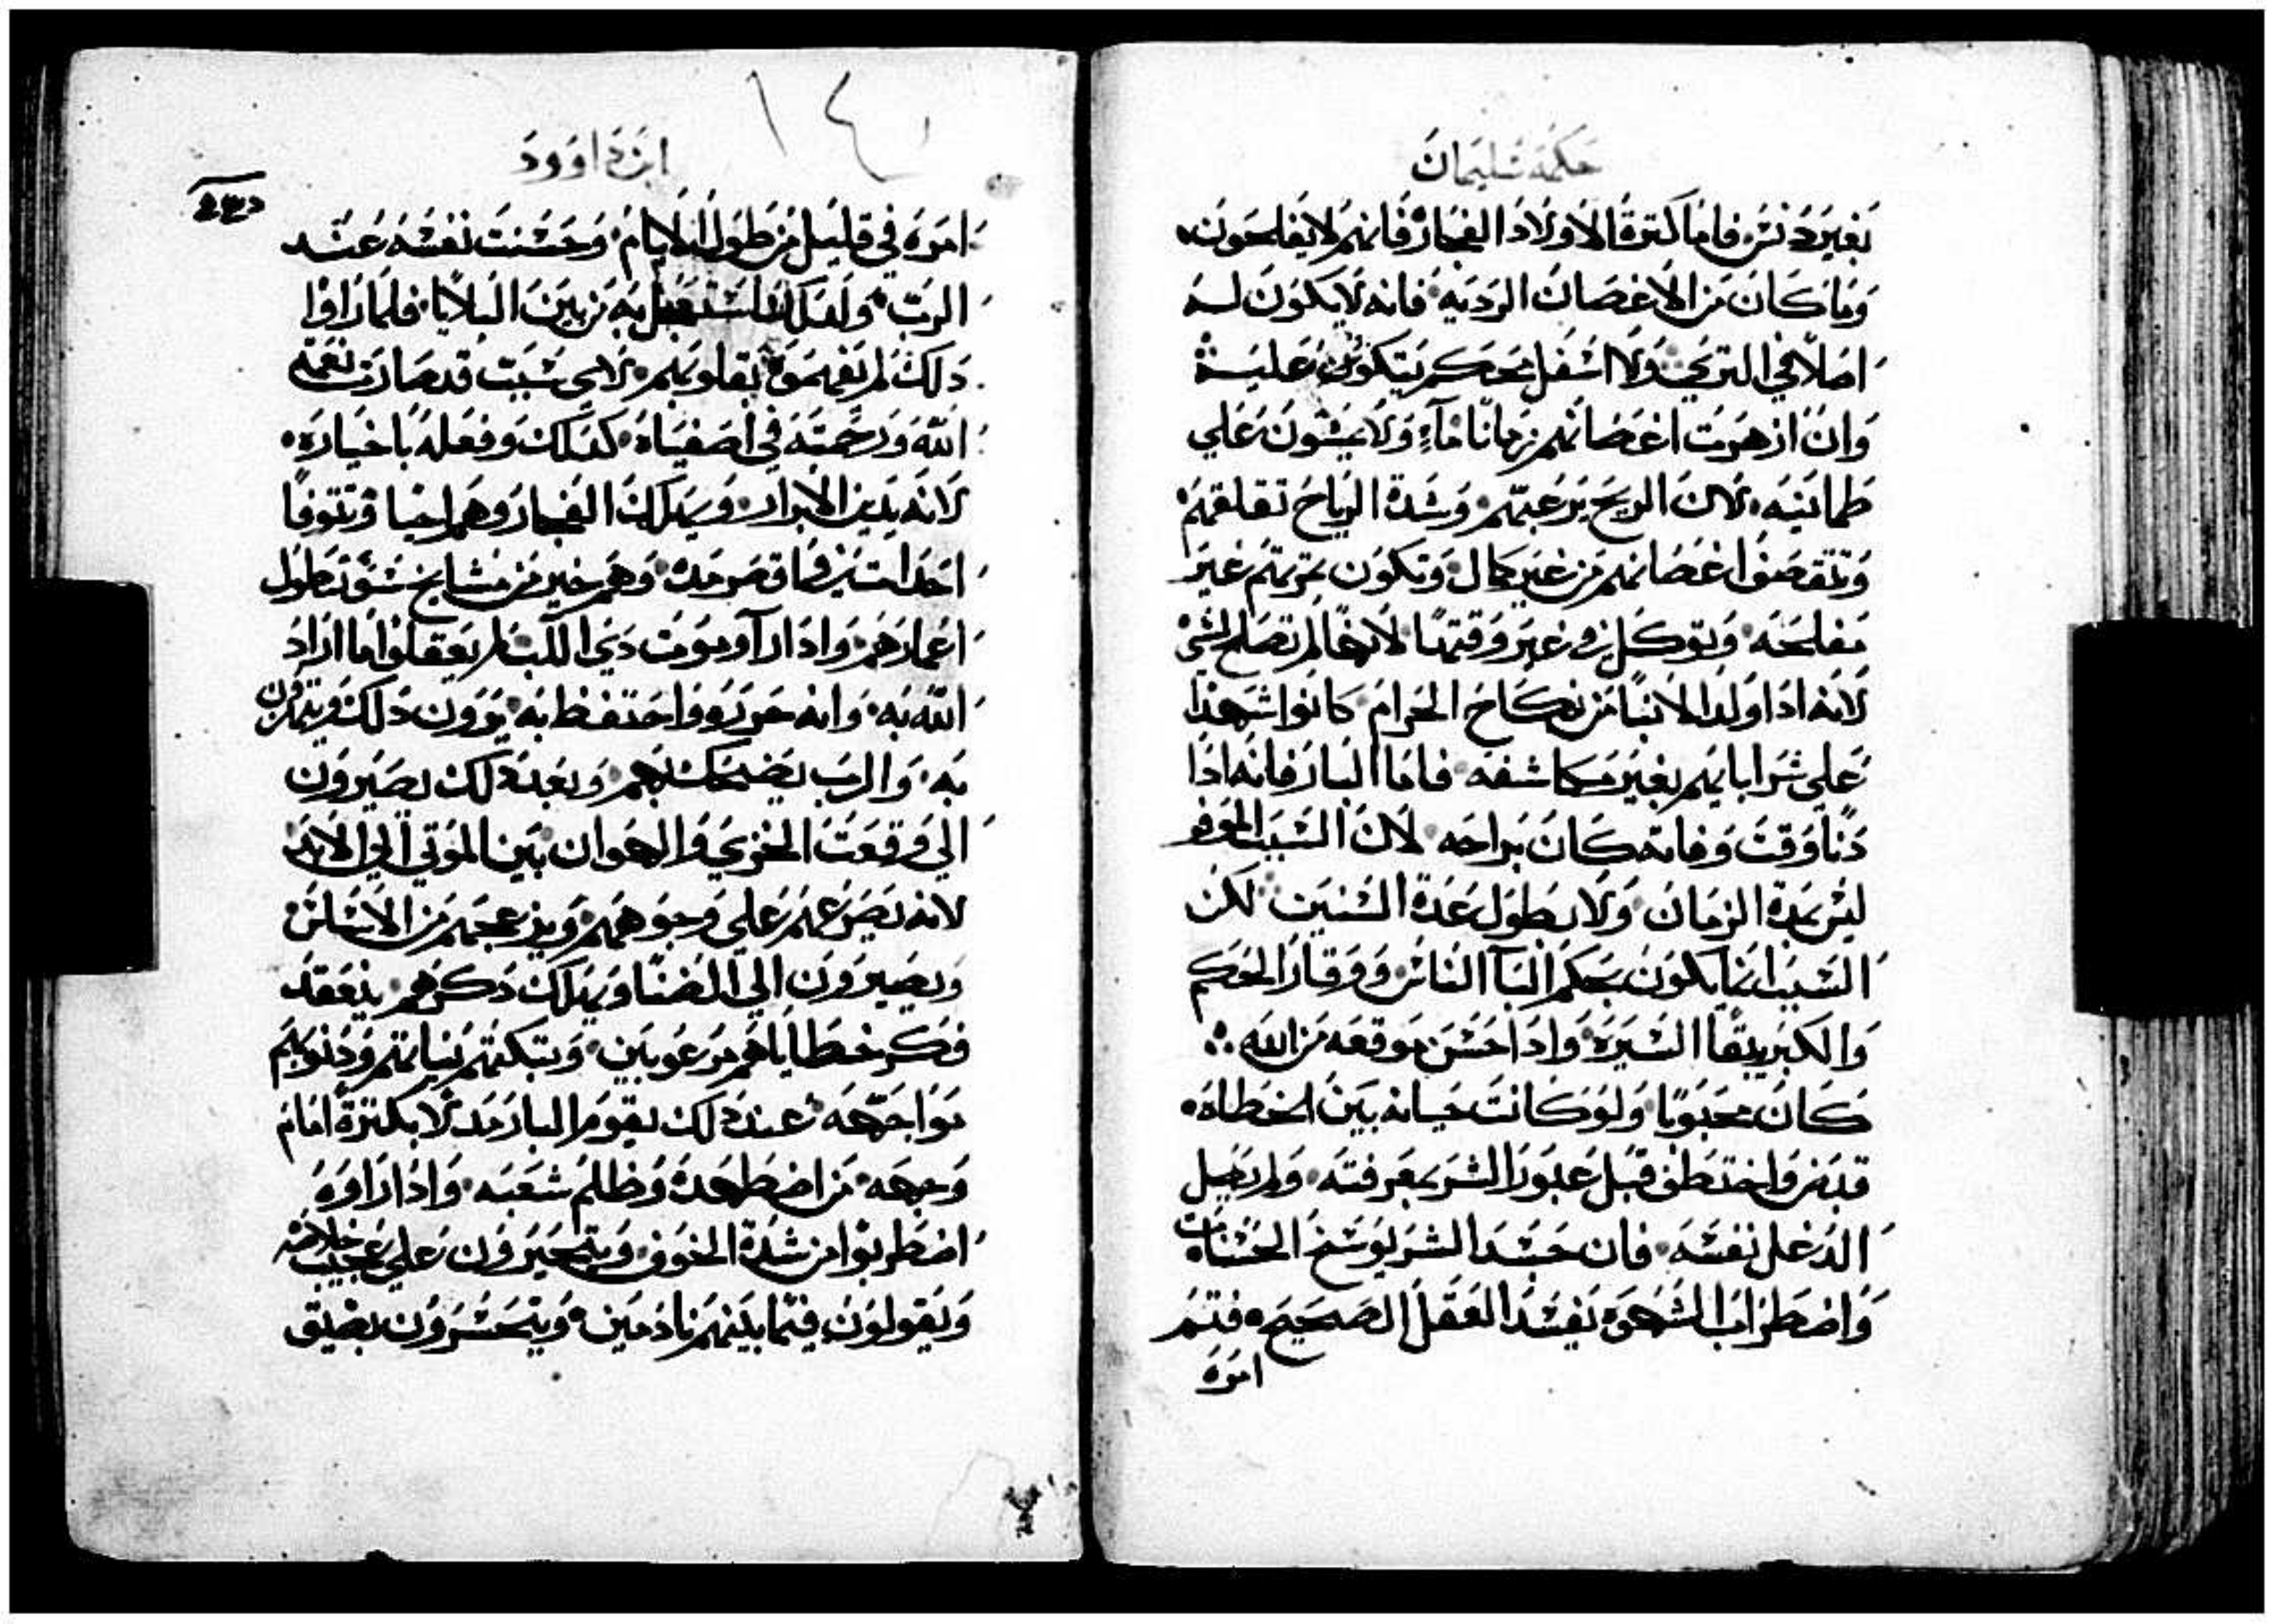 حكمة سليمان
بغير دنس فاما كترة الاولاد الفجار فانهم لا يفلحون
وما كان من الاغصان الرديه فانه لا يكون له
اصلا في التري ولا اسفل محكم يتكون عليه
وان ازهرت اغصانهم زمانا مآء ولا يمشون علي
طمانيه لان الريح يزعبتهم وشدة الرياح تقلقهم
وتتقصف اغصانهم من غير كمال وتكون ثمرتهم غير
مفلحه وتوكل في غير وقتها لانها لم تصلح لشي
لانه ادا اولد الابنا من نكاح الحرام كانوا اشهدا
علي شر ابايهم بغير مكاشفه فاما البار فانه اذا
دنا وقت وفاته كان براحه لان الشيب الموقر
ليس بمدة الزمان ولا بطول عدة السنين لكن
الشيب انما يكون بحكم البآ الناس ووقار الحكم
والكبر بنقا السيرة واذا حسن موقعه من الله
كان محبوبا ولو كانت حياته بين الخطاه
قد نفر واختطف قبل عبور الشر بمعرفته ولم يميل
الدغل نفسه فان حسد الشر يوسخ الحسنات
واضطراب الشهوه يفسد العقل الصحيح فتم
امره
١٤
ابن داوود
امره في قليل من طول الايام وحسنت نفسه عند
الرب ولدلك استعجل به من بين البلايا فلما راوا
دلك لم يفهموه بقلوبهم لاي شيت قد صارت نعمة
الله ورحمته في اصفياه كدلك وفعله باخياره
لانه يدين الابرار وسيهلك الفجار وهم احيا وتتوفا
احدات بزفما قصر مده وهم خير من مشايخ سوء تطول
اعمارهم وادا رآو موت دي اللب لم يعقلوا ما اراد
الله به وانه حرزه واحتفظ به يرون دلك ويتمزون
به والرب يضحك بهم وبعد دلك يصيرون
الي وقعت الخزي والهوان بين الموتي الي الابد
لانه يصرعهم علي وجوههم ويزعجهم من الاساس
ويصيرون الي الضنا ويهلك دكرهم بنعقد
فكر خطاياهم مرعوبين وتبكتهم نياتهم ودنوبهم
مواجهه عند دلك يقوم البار مدلا بكترة امام
وجهه من اضطهده وظلم شعبه واذا راوه
اضطربوا من شدة الخوف ويتحيرون علي عجيب خلاصه
ويقولون فيما بينهم نادمين ويتحسرون بضيق